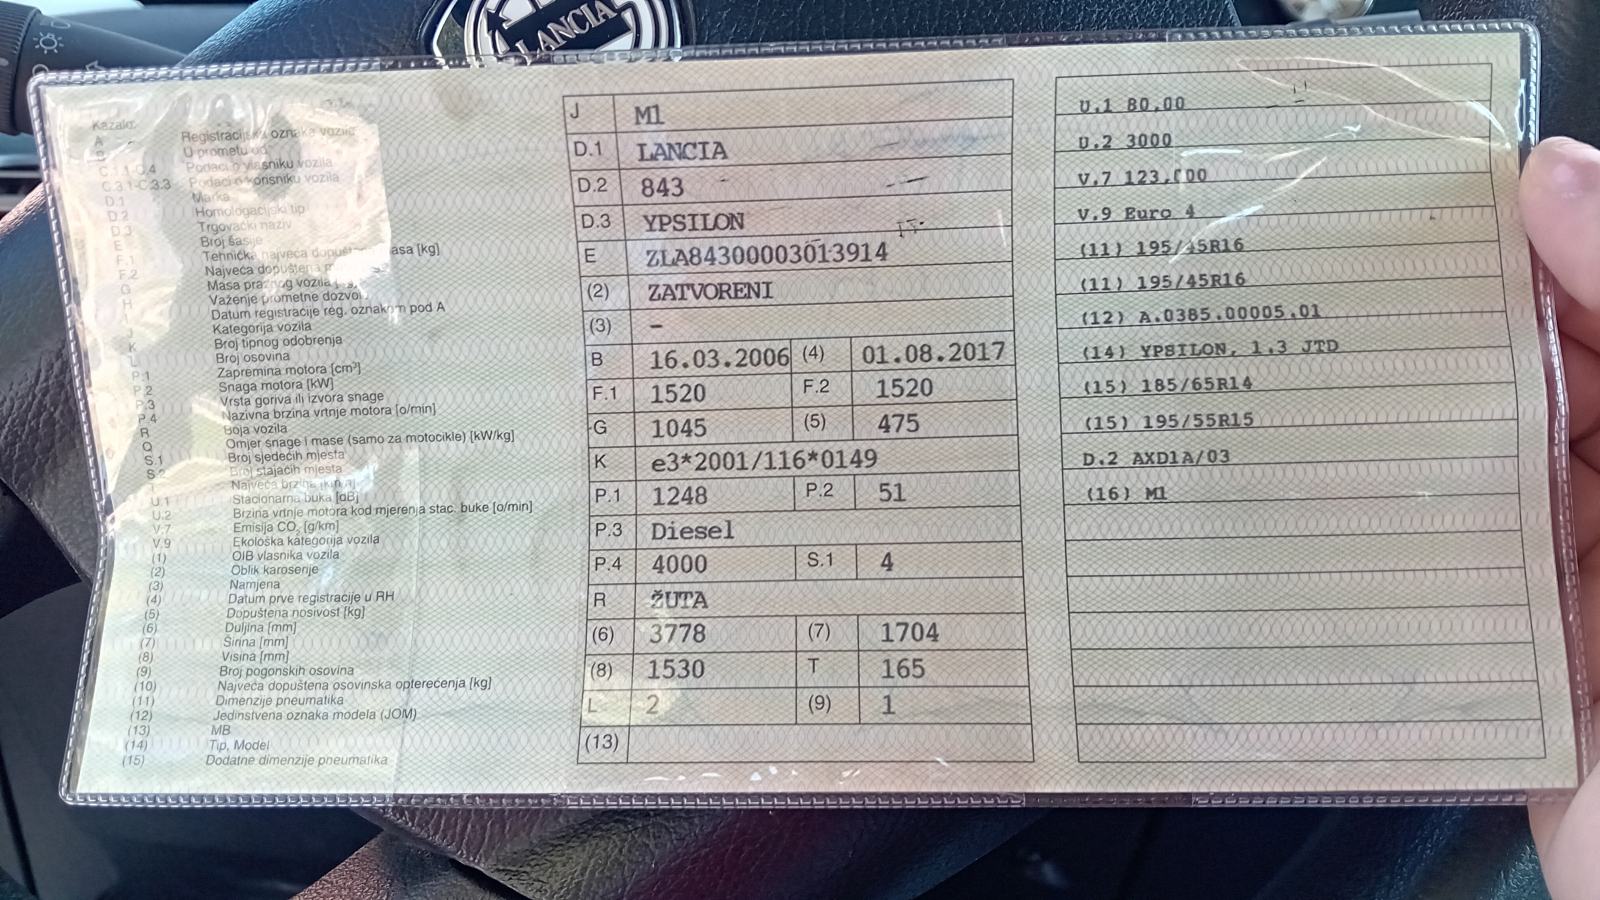 LANCIA
Kazalo:
A Registracijska oznaka vozila
B U prometu od
C.1.1-C.4 Podaci o vlasniku vozila
C.3.1-C.3.3 Podaci o korisniku vozila
D.1 Marka
D.2 Homologacijski tip
D.3 Trgovački naziv
E Broj šasije
F.1 Tehnička najveća dopuštena masa [kg]
F.2 Najveća dopuštena
G Masa praznog vozila
H Važenje prometne dozvole
I Datum registracije reg. oznakom pod A
J Kategorija vozila
K Broj tipnog odobrenja
L Broj osovina
P.1 Zapremina motora [cm³]
P.2 Snaga motora [kW]
P.3 Vrsta goriva ili izvora snage
P.4 Nazivna brzina vrtnje motora [o/min]
R Boja vozila
Q Omjer snage i mase (samo za motocikle) [kW/kg]
S.1 Broj sjedećih mjesta
S.2 Broj stajaćih mjesta
Najveća brzina [km/h]
U.1 Stacionarna buka [dB]
U.2 Brzina vrtnje motora kod mjerenja stac. buke [o/min]
V.7 Emisija CO₂ [g/km]
V.9 Ekološka kategorija vozila
(1) OIB vlasnika vozila
(2) Oblik karoserije
(3) Namjena
(4) Datum prve registracije u RH
(5) Dopuštena nosivost [kg]
(6) Duljina [mm]
(7) Širina [mm]
(8) Visina [mm]
(9) Broj pogonskih osovina
(10) Najveća dopuštena osovinska opterećenja [kg]
(11) Dimenzije pneumatika
(12) Jedinstvena oznaka modela (JOM)
(13) MB
(14) Tip, Model
(15) Dodatne dimenzije pneumatika
J M1
D.1 LANCIA
D.2 843
D.3 YPSILON
E ZLA84300003013914
(2) ZATVORENI
(3) -
B 16.03.2006 (4) 01.08.2017
F.1 1520 F.2 1520
G 1045 (5) 475
K e3*2001/116*0149
P.1 1248 P.2 51
P.3 Diesel
P.4 4000 S.1 4
R ŽUTA
(6) 3778 (7) 1704
(8) 1530 T 165
L 2 (9) 1
(13)
U.1 80,00
U.2 3000
V.7 123,000
V.9 Euro 4
(11) 195/45R16
(11) 195/45R16
(12) A.0385.00005.01
(14) YPSILON, 1.3 JTD
(15) 185/65R14
(15) 195/55R15
D.2 AXD1A/03
(16) M1